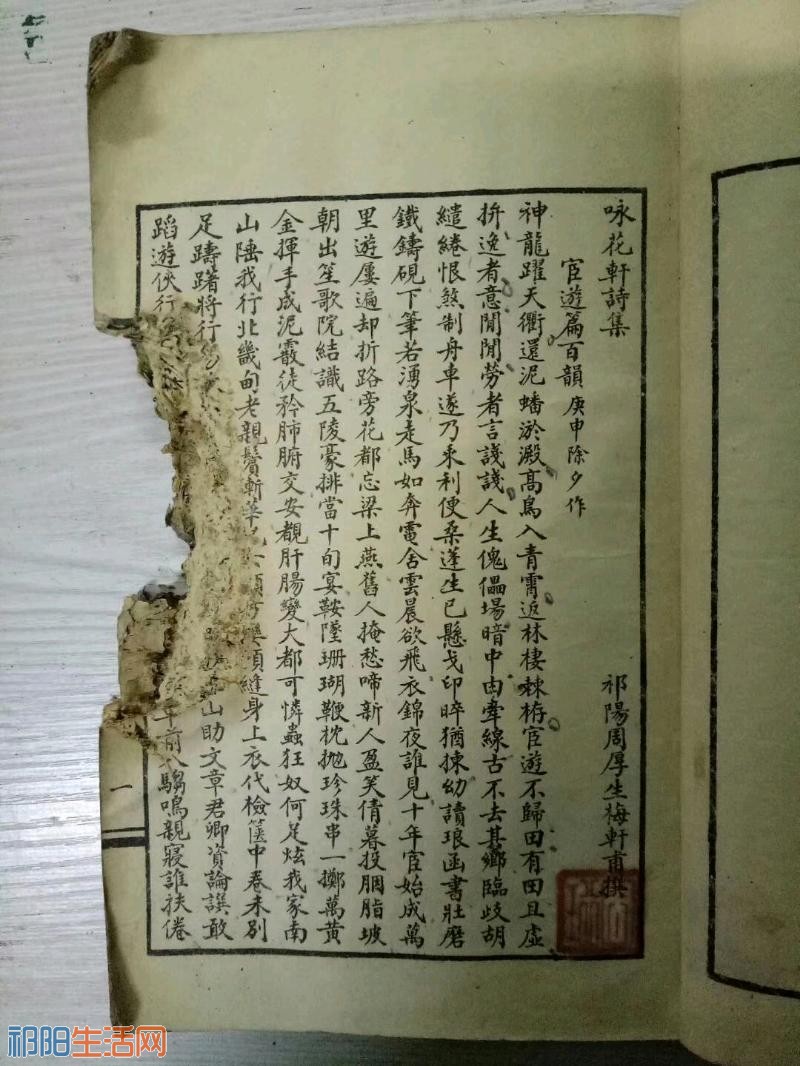 咏花軒詩集
祁陽周厚生梅軒甫撰
宦遊篇百韻 庚申除夕作
神龍躍天衢還泥蟠淤澱高鳥入青霄返林棲棘栫宦遊不歸田有田且虛
拚逸者意閒閒勞者言諓諓人生傀儡場暗中由牽線古不去其鄉臨歧胡
繾綣恨煞制舟車遂乃來利便桑蓬生已懸戈印晬猶揀幼讀琅函書壯磨
鐵鑄硯下筆若湧泉走馬如奔電舍雲晨欲飛衣錦夜誰見十年宦始成萬
里遊屢遍却折路旁花都忘梁上燕舊人掩愁啼新人盈笑倩暮投胭脂坡
朝出笙歌院結識五陵豪排當十旬宴鞍墮珊瑚鞭枕拋珍珠串一擲萬黃
金揮手成泥霰徒矜肺腑交安覩肝腸變大都可憐蟲狂奴何足炫我家南
山陲我行北畿甸老親鬢漸華 須縫身上衣代檢篋中卷未別
足躊躇將行 山助文章君卿資論譔敢
蹈遊俠行 年前 騶鳴親寢誰扶倦
一
祁阳生活网